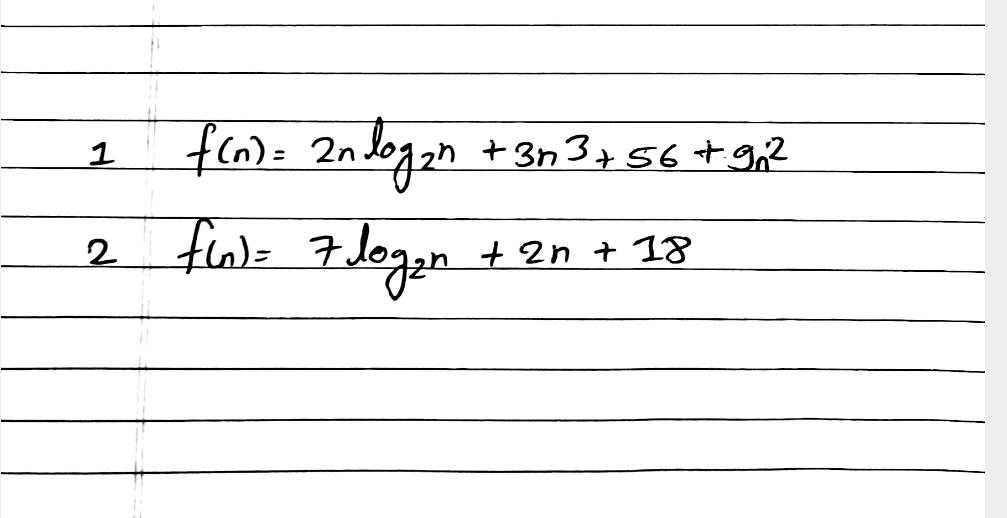 1 f(n) = 2n log₂n + 3n3 + 56 + 9n²
2 f(n) = 7 log₂n + 2n + 18